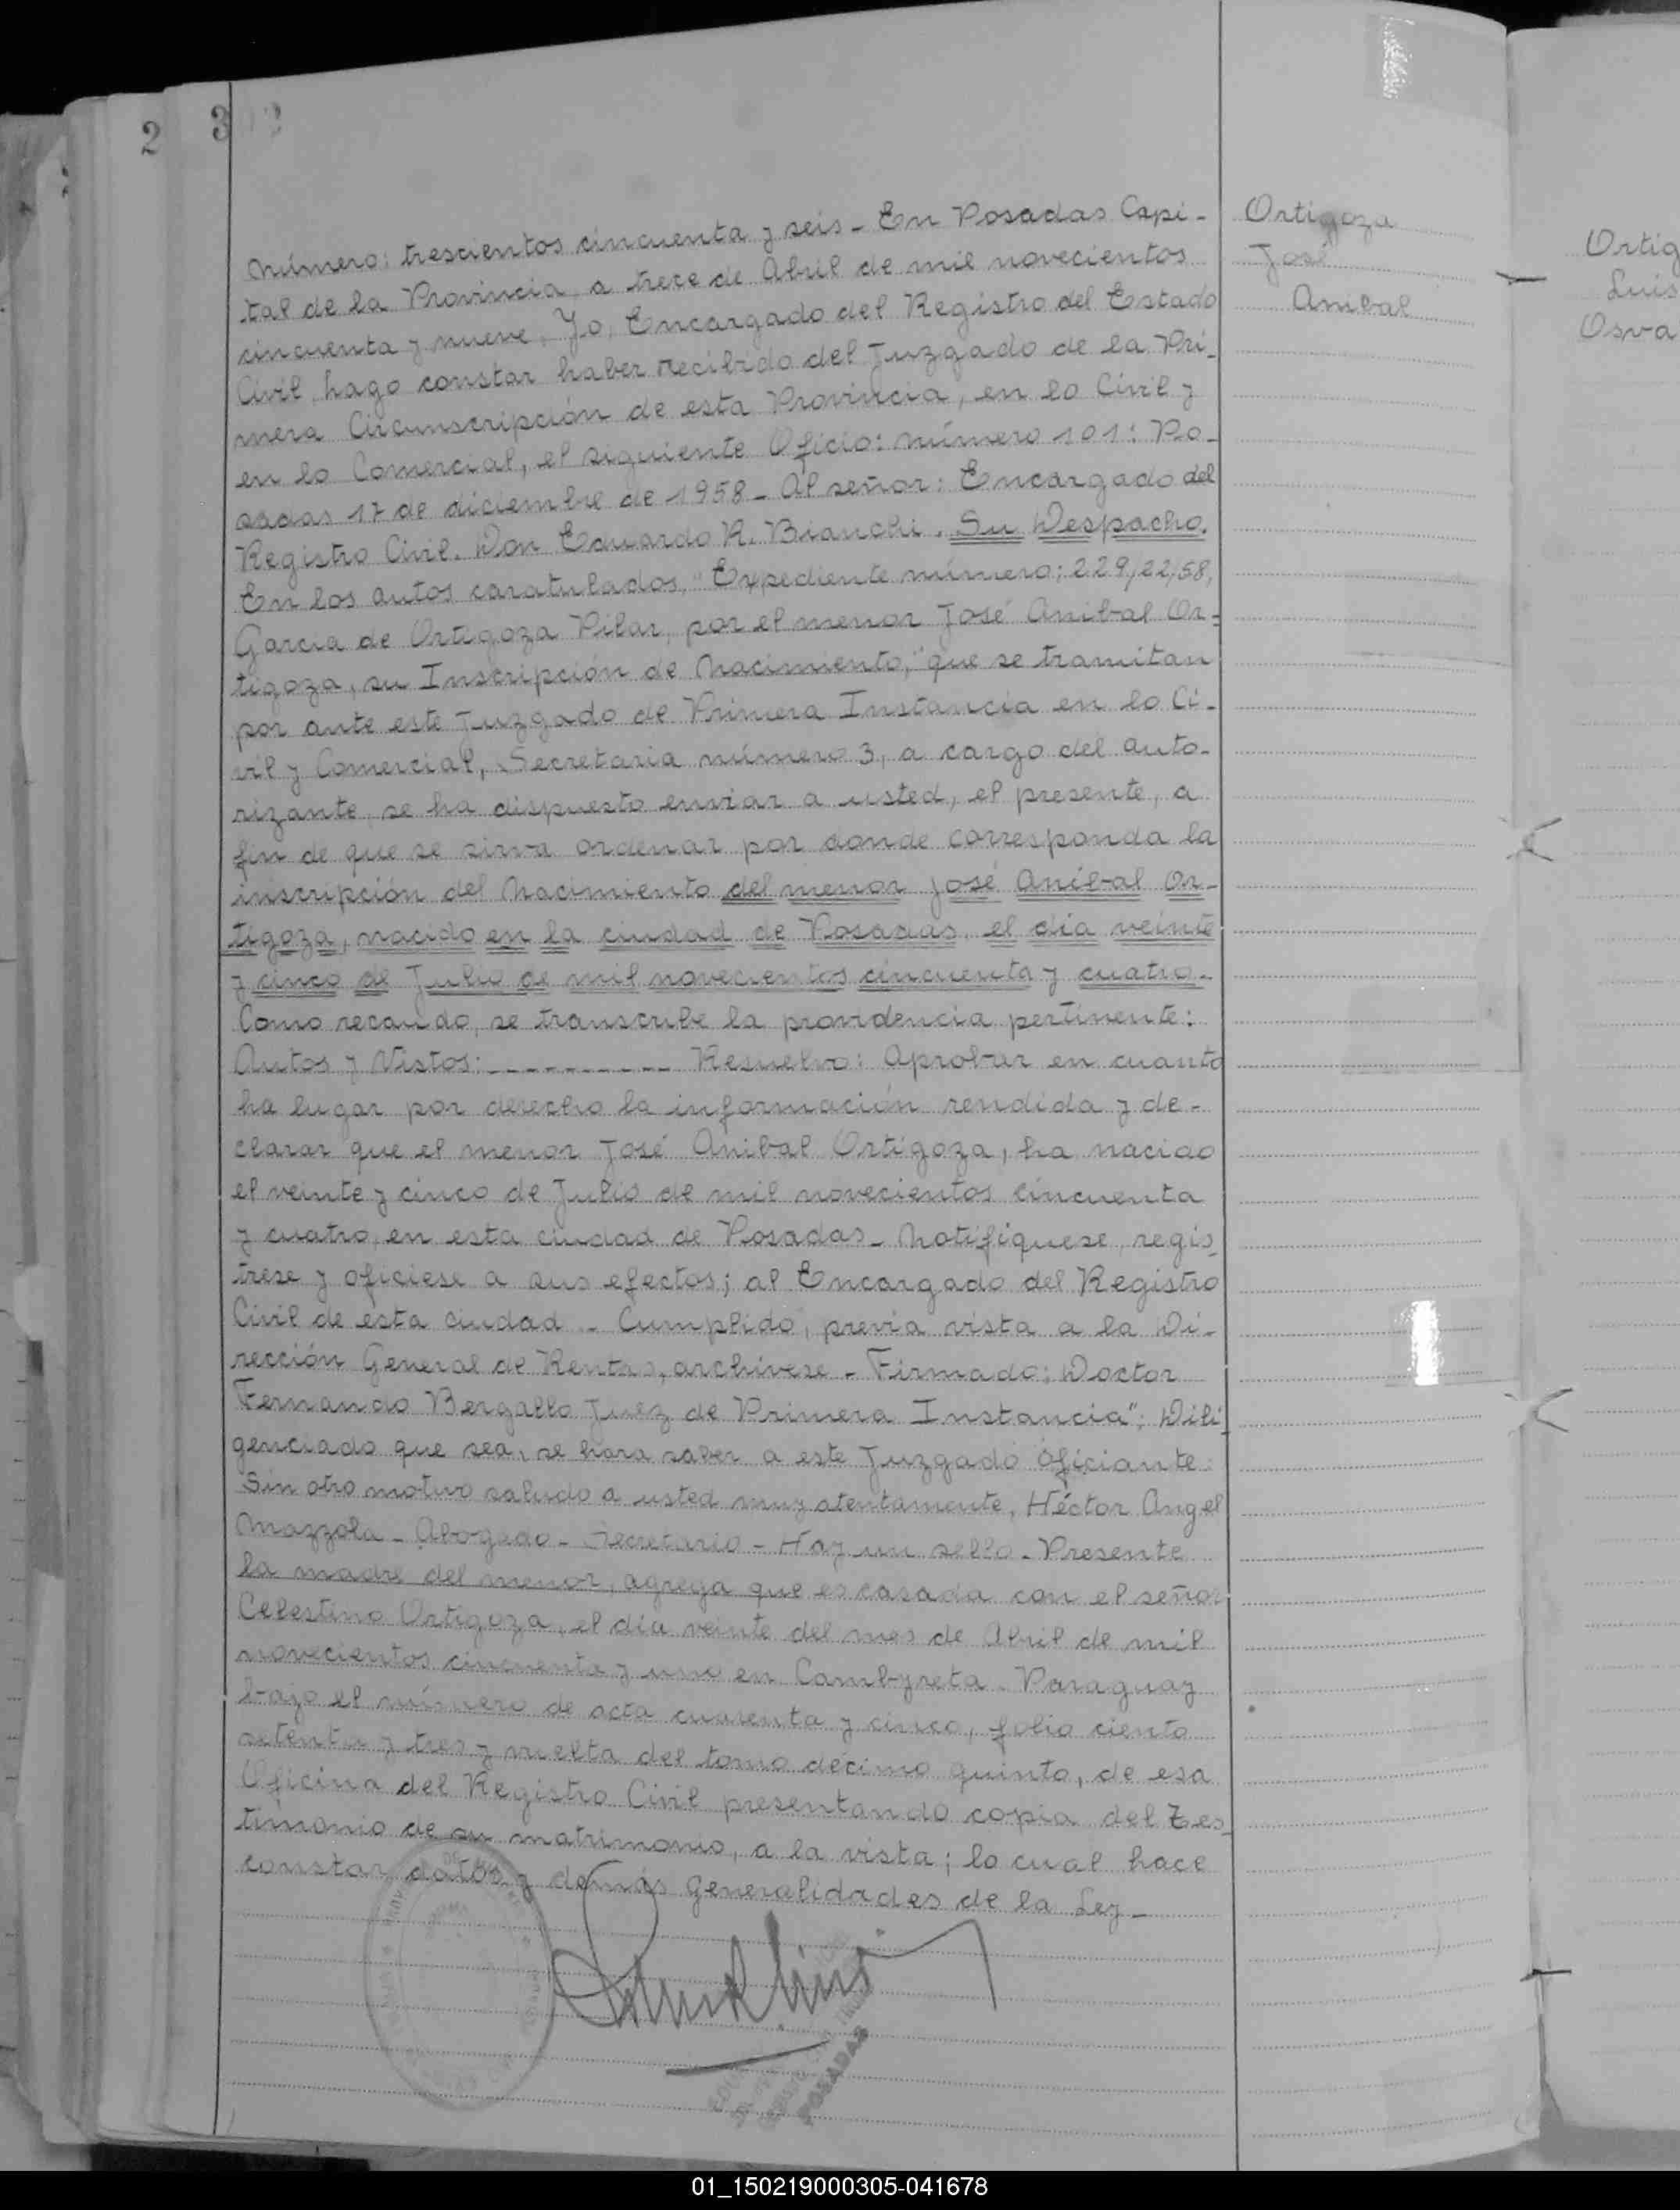 2 3
Ortigoza
José
Anibal
Ortig
Luis
Osva
Número: trescientos cincuenta y seis - En Posadas Capi-
tal de la Provincia, a trece de Abril de mil novecientos
cincuenta y nueve, Yo, Encargado del Registro del Estado
Civil, hago constar haber recibido del Juzgado de la Pri-
mera Circunscripción de esta Provincia, en lo Civil y
en lo Comercial, el siguiente Oficio: número 101: Po-
sadas 17 de diciembre de 1958 - Al señor: Encargado del
Registro Civil. Don Eduardo R. Bianchi. Su Despacho.
En los autos caratulados, "Expediente número; 229/22/58,
Garcia de Ortigoza Pilar, por el menor José Anibal Or=
tigoza, su Inscripción de Nacimiento," que se tramitan
por ante este Juzgado de Primera Instancia en lo Ci-
vil y Comercial, Secretaria número 3, a cargo del auto-
rizante, se ha dispuesto enviar a usted, el presente, a
fin de que se sirva ordenar por donde corresponda la
inscripción del Nacimiento del menor José Aníbal Or-
tigoza, nacido en la ciudad de Posadas, el día veinte
y cinco de Julio de mil novecientos cincuenta y cuatro.-
Como recaudo, se transcribe la providencia pertinente:
Autos y Vistos: ---------- Resuelvo: Aprobar en cuanto
ha lugar por derecho la información rendida y de-
clarar que el menor José Anibal Ortigoza, ha nacido
el veinte y cinco de Julio de mil novecientos cincuenta
y cuatro, en esta ciudad de Posadas - Notifiquese, regis-
trese y oficiese a sus efectos; al Encargado del Registro
Civil de esta ciudad - Cumplido, previa vista a la Di-
rección General de Rentas, archivese - Firmado: Doctor
Fernando Bergallo Juez de Primera Instancia"; Dili-
genciado que sea, se hara saber a este Juzgado oficiante.
Sin otro motivo saludo a usted muy atentamente, Héctor Angel
Mazzola - Abogado - Secretario - Hay un sello - Presente
la madre del menor, agrega que es casada con el señor
Celestino Ortigoza, el día veinte del mes de Abril de mil
novecientos cincuenta y uno en Cambyreta - Paraguay
bajo el número de acta cuarenta y cinco, folio ciento
setenta y tres y vuelta del tomo décimo quinto, de esa
Oficina del Registro Civil presentando copia del tes-
timonio de su matrimonio, a la vista; lo cual hace
constar datos y demás generalidades de la Ley -
POSADAS
01_150219000305-041678